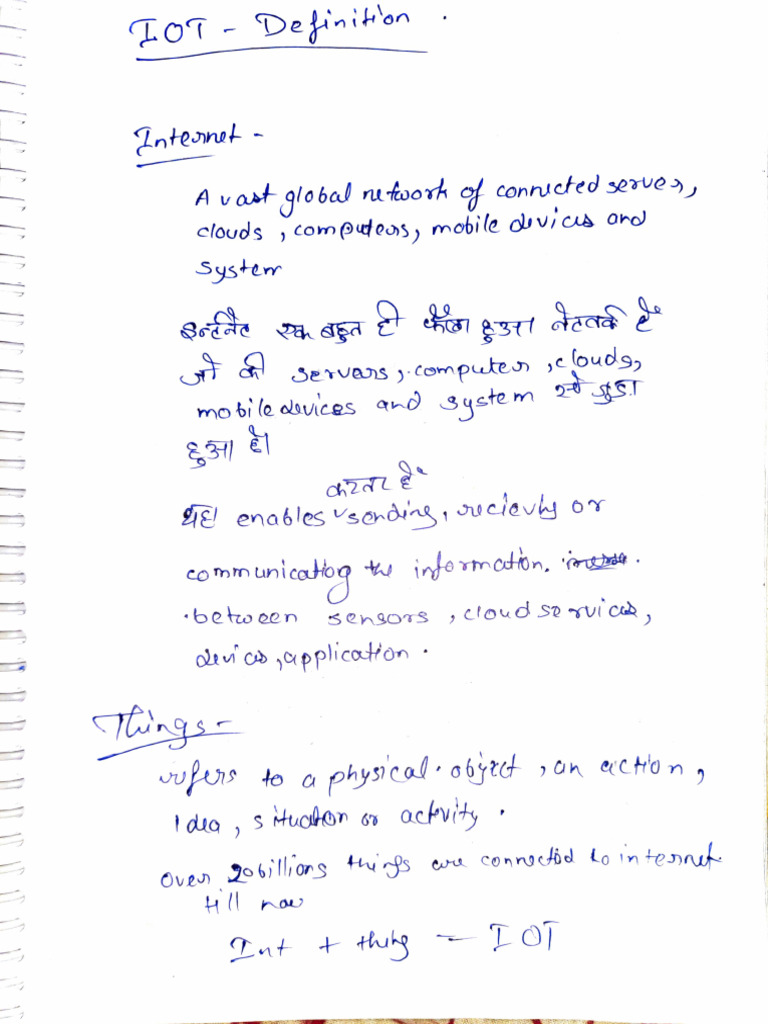 IOT - Definition .
Internet -
A vast global network of connected server,
clouds , computers, mobile devices and
system
इन्टर्नेट एक बहुत ही फैला हुआ नेटवर्क है
जो की servers, computer , clouds,
mobile devices and system से जुड़ा
हुआ है।
करता है
यह enables sending, recieving or
communicating the information.
between sensors , cloud services,
devices, application .
Things -
refers to a physical object , an action ,
Idea , situation or activity .
Over 20 billions things are connected to internet
till now
Int + thing = IOT